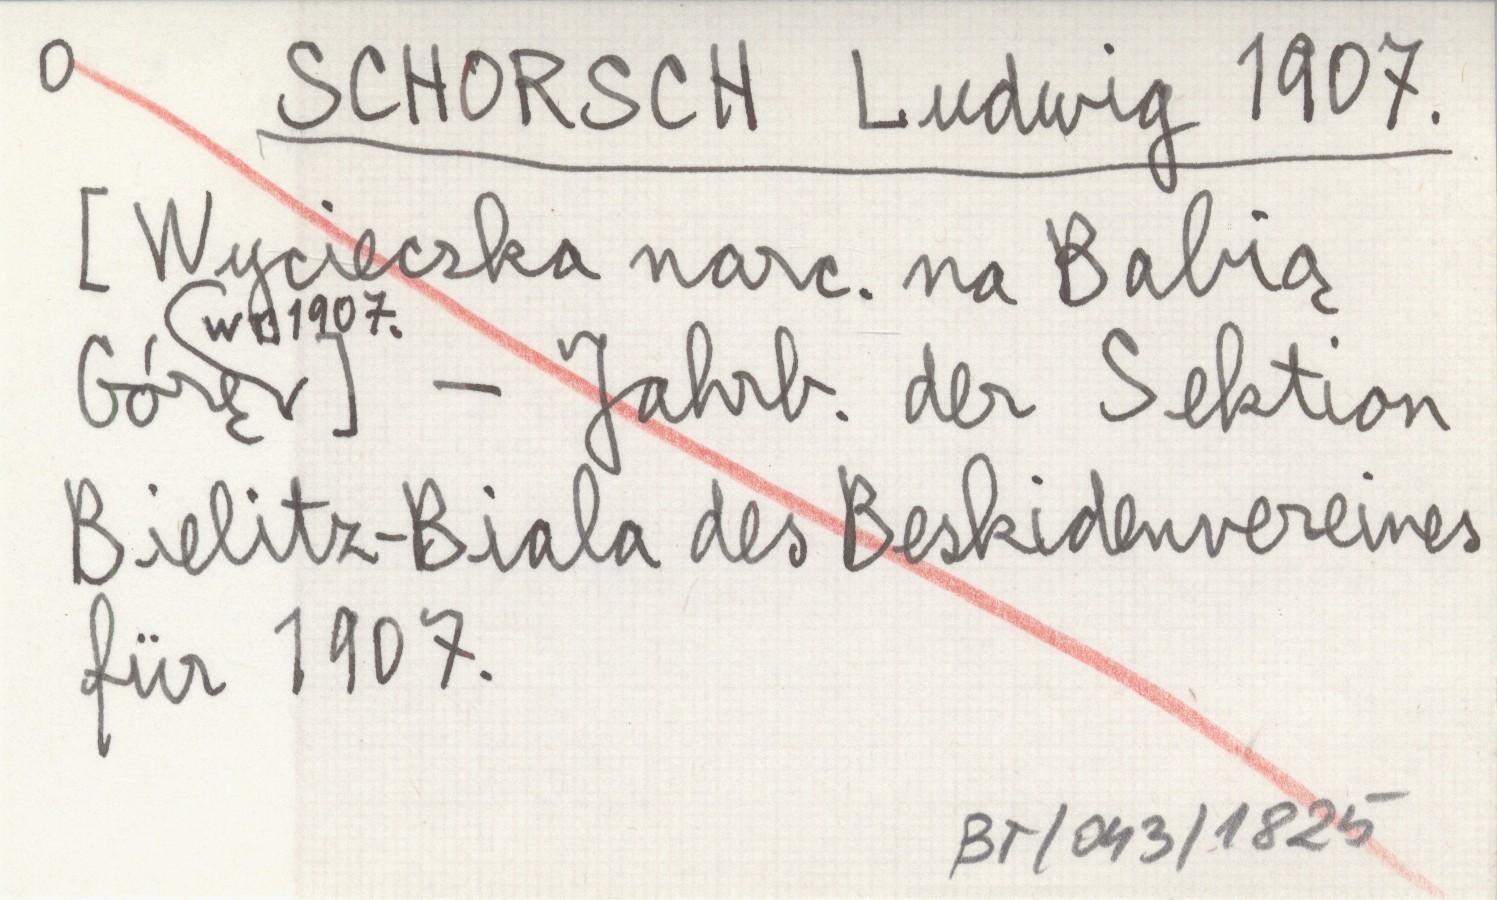 O SCHORSCH Ludwig 1907.
[Wycieczka narc. na Babią
w r. 1907.
Górę] – Jahrb. der Sektion
Bielitz-Biala des Beskidenvereines
für 1907.
BT/043/1825